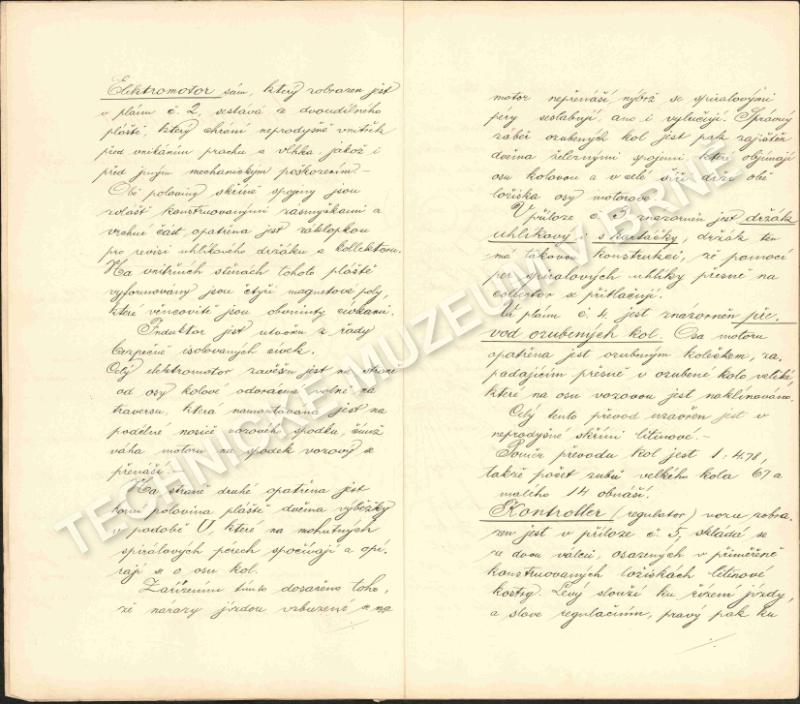 Elektromotor sám, který zobrazen jest
v plánu č. 2, sestává z dvoudílného
pláště, který chrání neprodyšně vnitřek
před vnikáním prachu a vlhka, jakož i
před jiným mechanickým poškozením.-
Obě poloviny skříně spojeny jsou
zvlášť konstruovanými zasmyčkami a
vrchní část opatřena jest záklopkou
pro revisi uhlíkového držáku a kollektoru.
Na vnitřních stěnách tohoto pláště
vyformovány jsou čtyři magnetové poly,
které věncovitě jsou obvinuty cívkami.
Induktor jest utvořen z řady
bezpečně isolovaných cívek.
Celý elektromotor zavěšen jest na straně
od osy kolové odvrácené volně na
traversu, která namontována jest na
podélné nosiče vozového spodku, čímž
váha motoru na spodek vozový se
přenáší.
Na straně druhé opatřena jest
polovina pláště dvěma výběžky
v podobě U, které na mohutných
spirálových pérech spočívají a opí-
rají se o osu kol.
Zařízením tímto dosaženo toho,
že nárazy jízdou vzbuzené se na
motor nepřenáší, nýbrž se spiralovými
péry seslabují, ano i vylučují. Správný
záběr ozubených kol jest pak zajištěn
dvěma železnými spojeni, které objímají
osu kolovou a v celé šíři drží obě
ložiska osy motorové.
V příloze č. 3, znazorněn jest držák
uhlíkový s kartáčky, držák ten
má takovou konstrukci, že pomocí
per spiralových uhlíky přesně na
collector se přitlačují.
V plánu č. 4, jest znázorněn pře-
vod ozubených kol. Osa motoru
opatřena jest ozubeným kolečkem, za-
padajícím přesně v ozubené kolo veliké,
které na osu vozovou jest naklínováno.
Celý tento převod uzavřen jest v
neprodyšné skříni litinové.-
Poměr převodu kol jest 1:4.78,
takže počet zubů velkého kola 67 a
malého 14 obnáší.
Kontroller (regulator) vozu zobra-
zen jest v příloze č. 5, skládá se
ze dvou válců, osazených v přiměřeně
konstruovaných ložiskách litinové
kostry. Levý slouží ku řízení jízdy,
a slove regulačním, pravý pak ku
TECHNICKÉ MUZEUM V BRNĚ